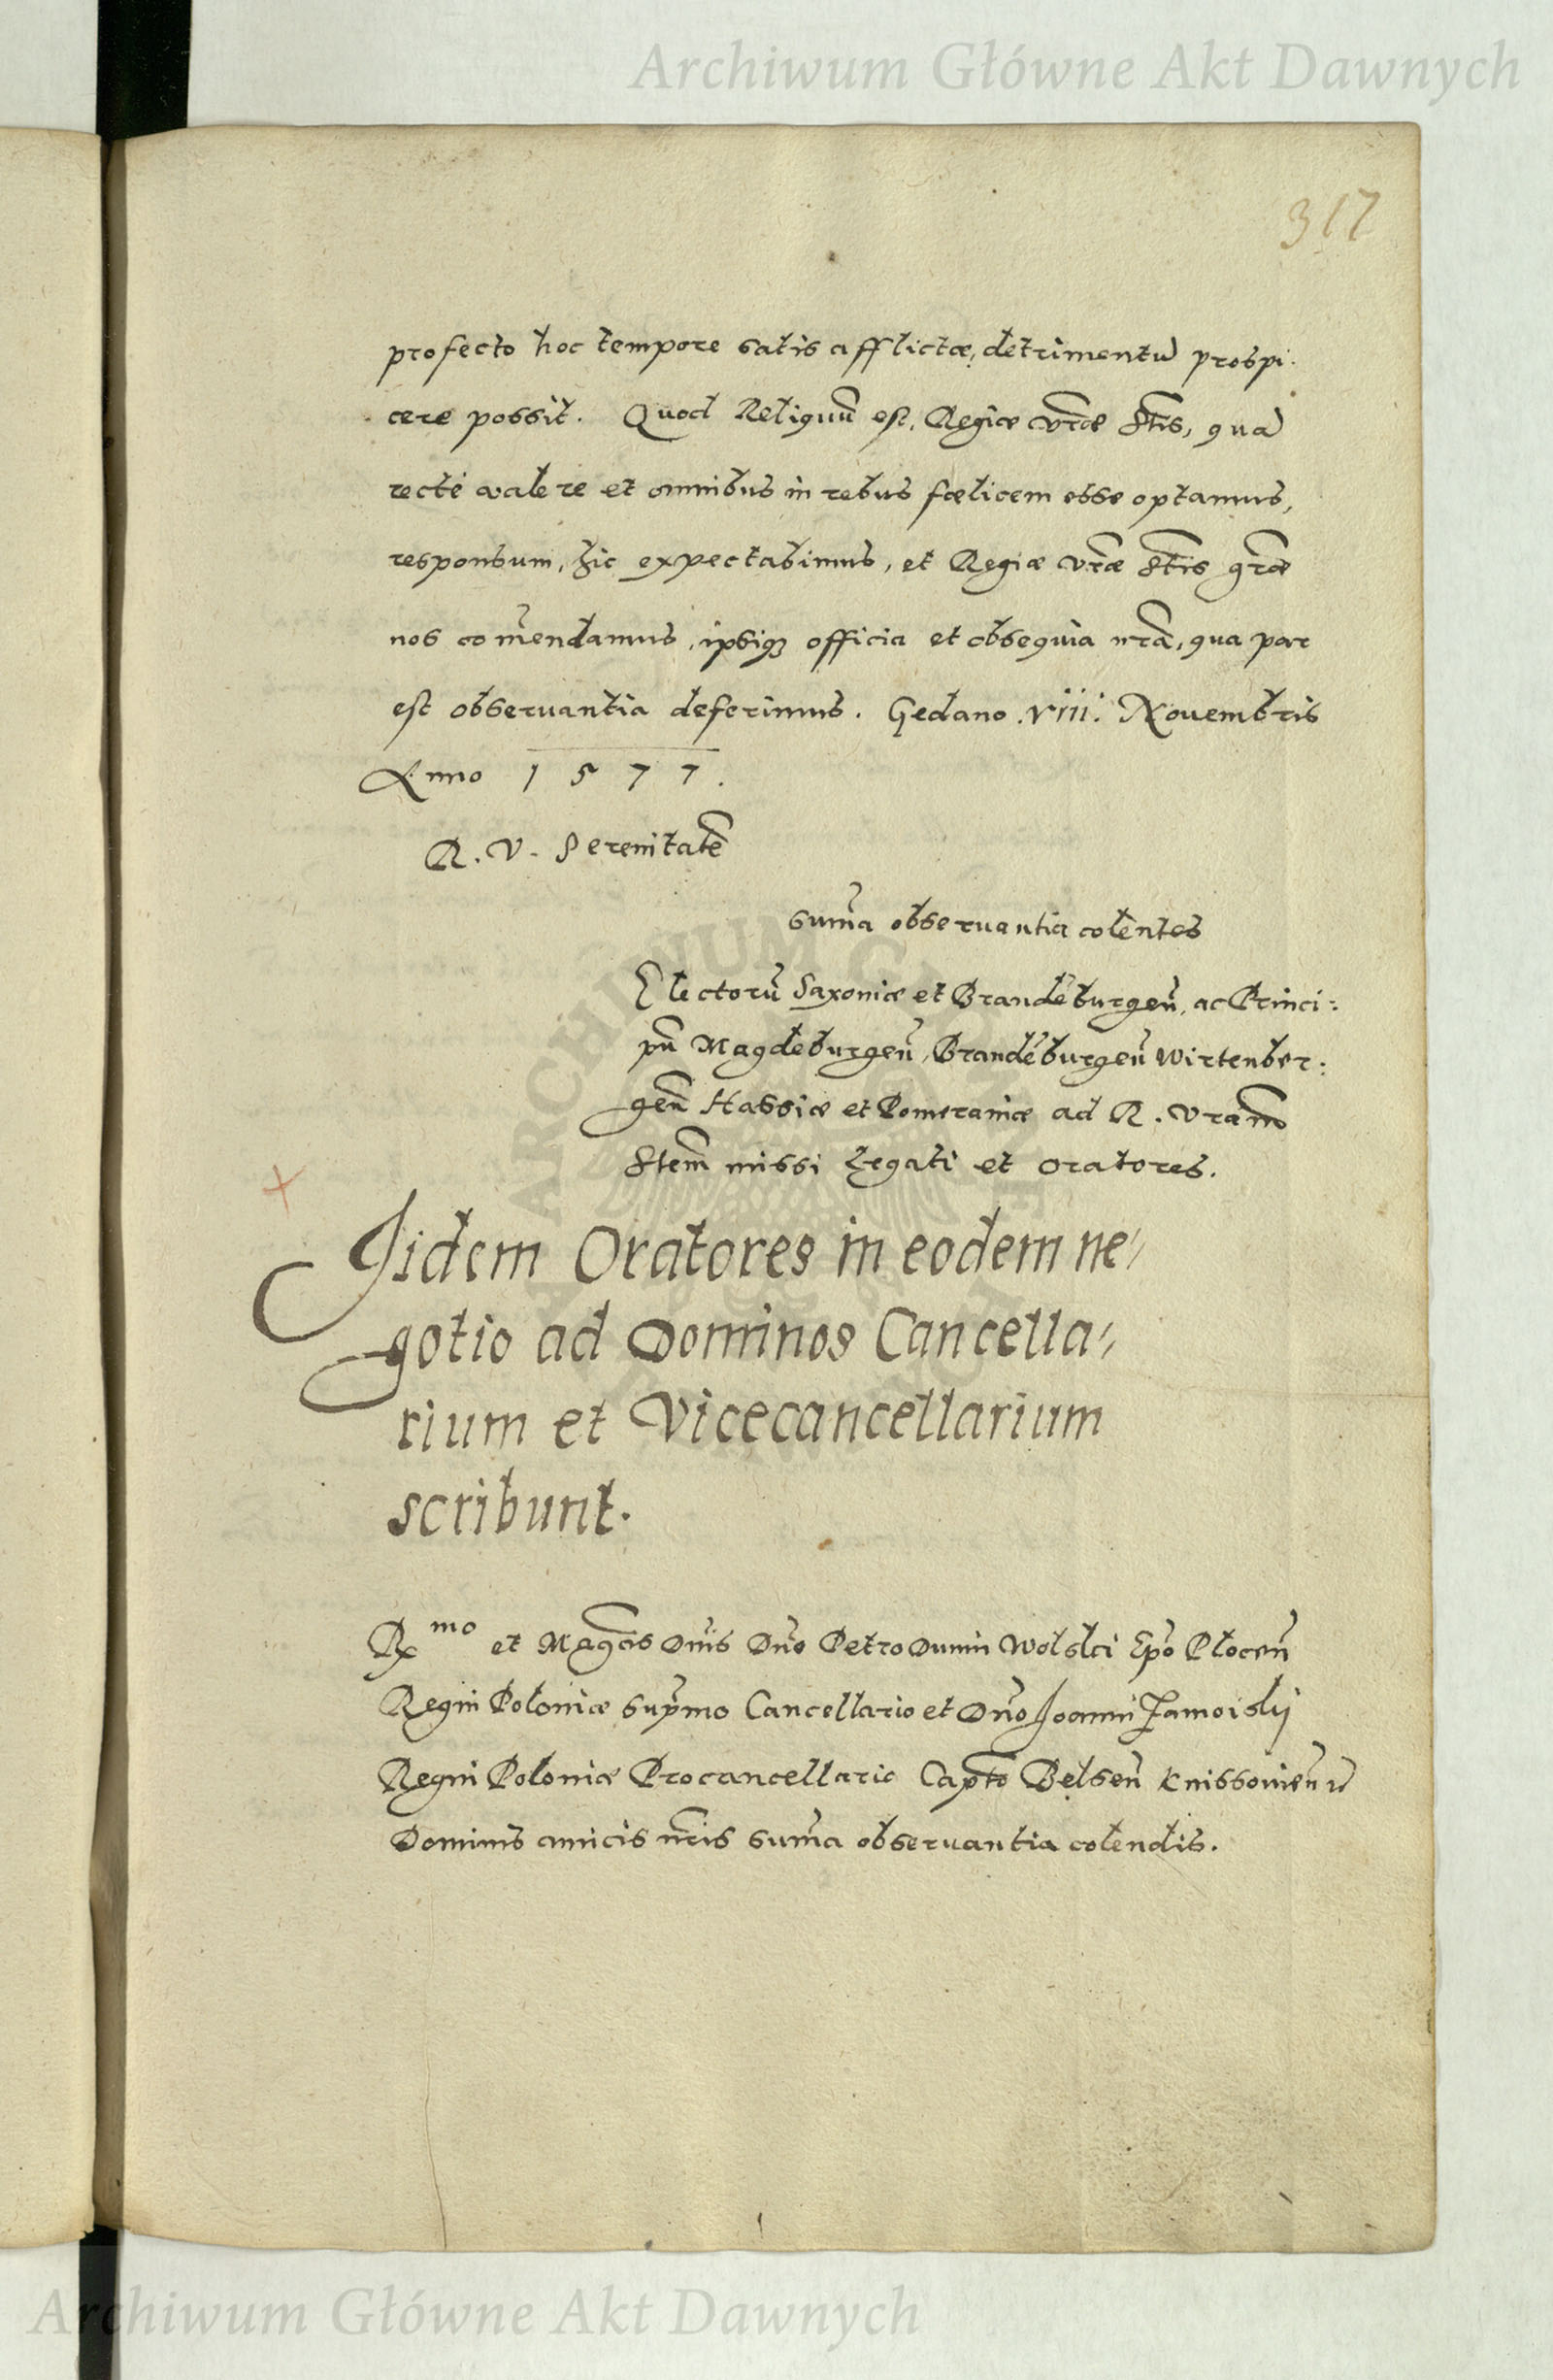 Archiwum Główne Akt Dawnych
317
profecto hoc tempore satis afflictæ, detrimentū prospi-
cere possit. Quod Reliquū est, Regiæ vr̄æ Stīs, quā
recte valere et omnibus in rebus fœlicem esse optamus,
responsum, hic expectabimus, et Regiæ vr̄æ Stīs gr̄æ
nos com̄endamus, ipsiq₃ officia et obsequia nr̄a, qua par
est obseruantia deferimus. Gedano .viii. Nouembris
Anno 1577.
R. V. Serenitatē
sum̄a obseruantia colentes
Electorū Saxoniæ et Brandēburgen̄, ac Princi:
pū Magdeburgen̄, Brandēburgen̄ Wirtenber:
gen̄ Hassiæ et Pomeraniæ ad R. vram̄
Stem̄ missi Legati et oratores.
Iidem Oratores in eodem ne-
gotio ad Dominos Cancella-
rium et Vicecancellarium
scribunt.
Rmo et Maḡcis Dn̄is Dn̄o Petro Dunin Wolski Ep̄o Plocen̄
Regni Poloniæ sup̄mo Cancellario et Dn̄o Joanni Zamoiskij
Regni Poloniæ Procancellario Capt̄o Belsen̄ Knissouien̄
Dominis amicis nr̄is sum̄a obseruantia colendis.
Archiwum Główne Akt Dawnych